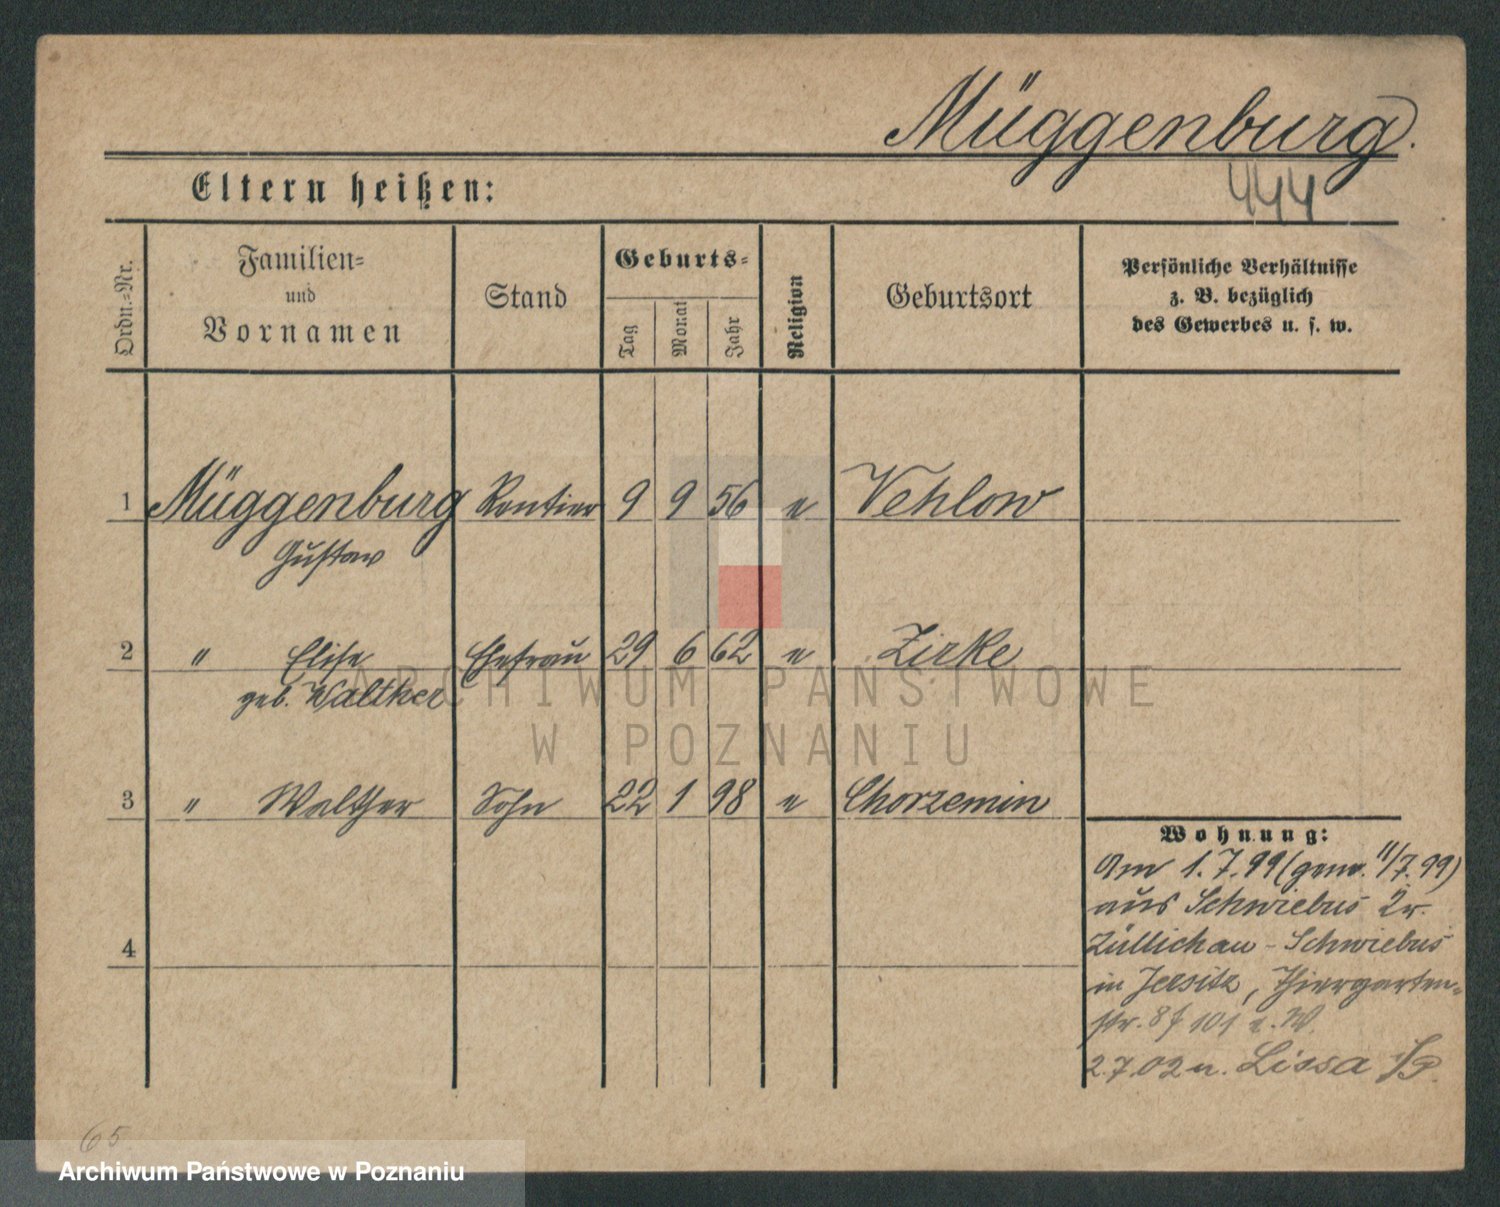 Müggenburg.
444
Eltern heißen:
Ordn.-Nr.
Familien-
und
Vornamen
Stand
Geburts-
Tag
Monat
Jahr
Religion
Geburtsort
Persönliche Verhältnisse
z. B. bezüglich
des Gewerbes u. s. w.
1 Müggenburg Rentier 9 9 56 e Vehlow
Gustav
2 " Elise Ehefrau 29 6 62 e Zirke
geb. Walther
3 " Walther Sohn 22 1 98 e Chorzemin
4
Wohnung:
Am 1.7.99 (gem. 11/7.99)
aus Schwiebus Kr.
Züllichau-Schwiebus
in Jersitz, Thiergarten-
str. 8 f 101 e. W.
2.7.02 n. Lissa i/P.
65
ARCHIWUM PAŃSTWOWE
W POZNANIU
Archiwum Państwowe w Poznaniu